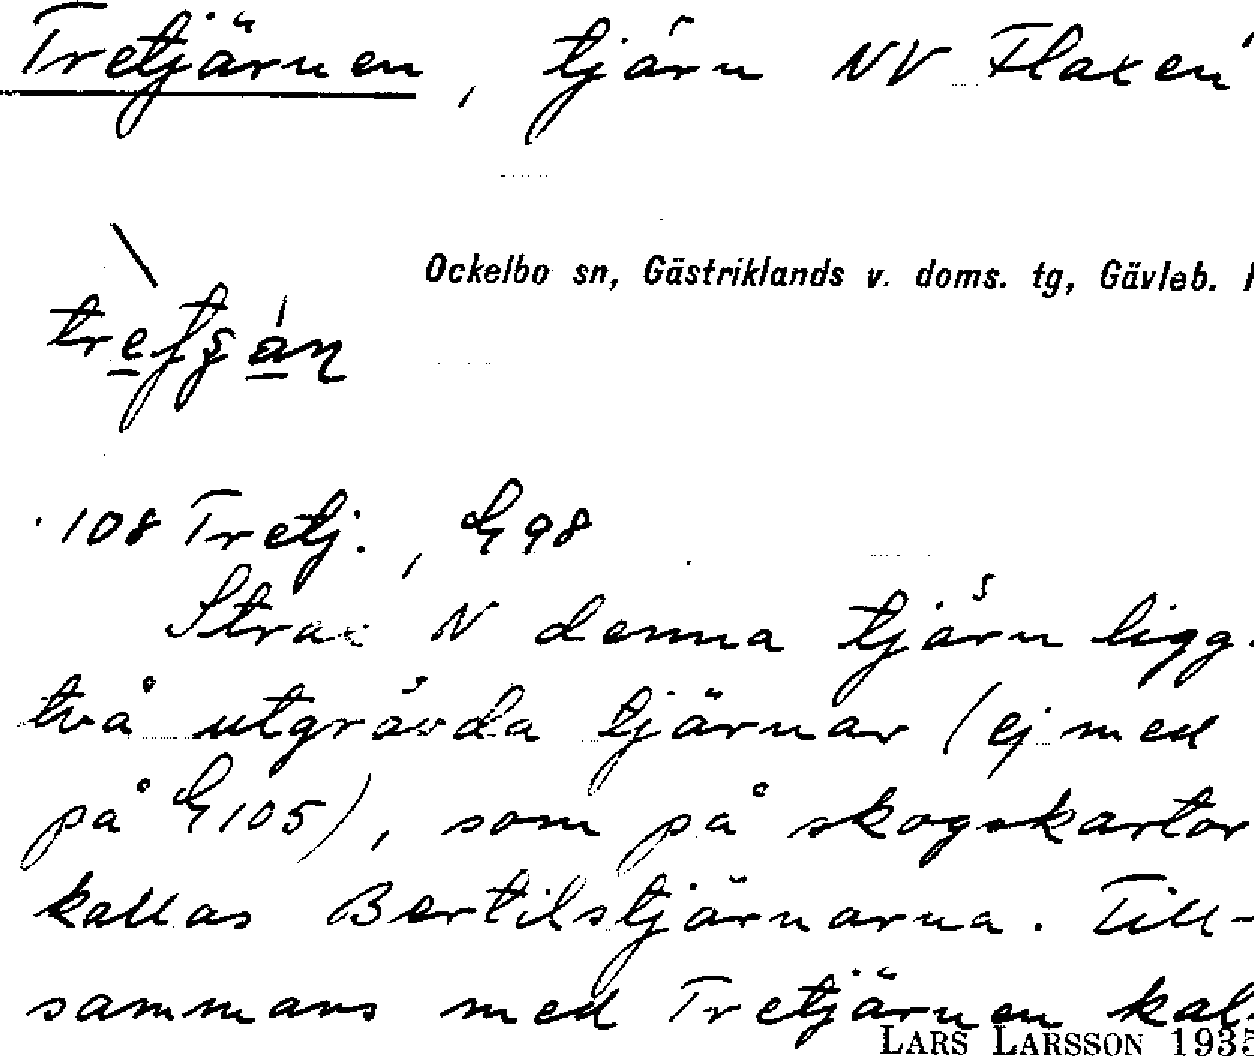 Tretjärnen, tjärn NV Flaxen
Ockelbo sn, Gästriklands v. doms. tg, Gävleb.
108 Tretj., G 98
Strax N denna tjärn ligg.
två utgrävda tjärnar (ej med
på G 105), som på skogskartor
kallas Bertilstjärnarna. Till-
sammans med Tretjärnen kal-
LARS LARSSON 1935